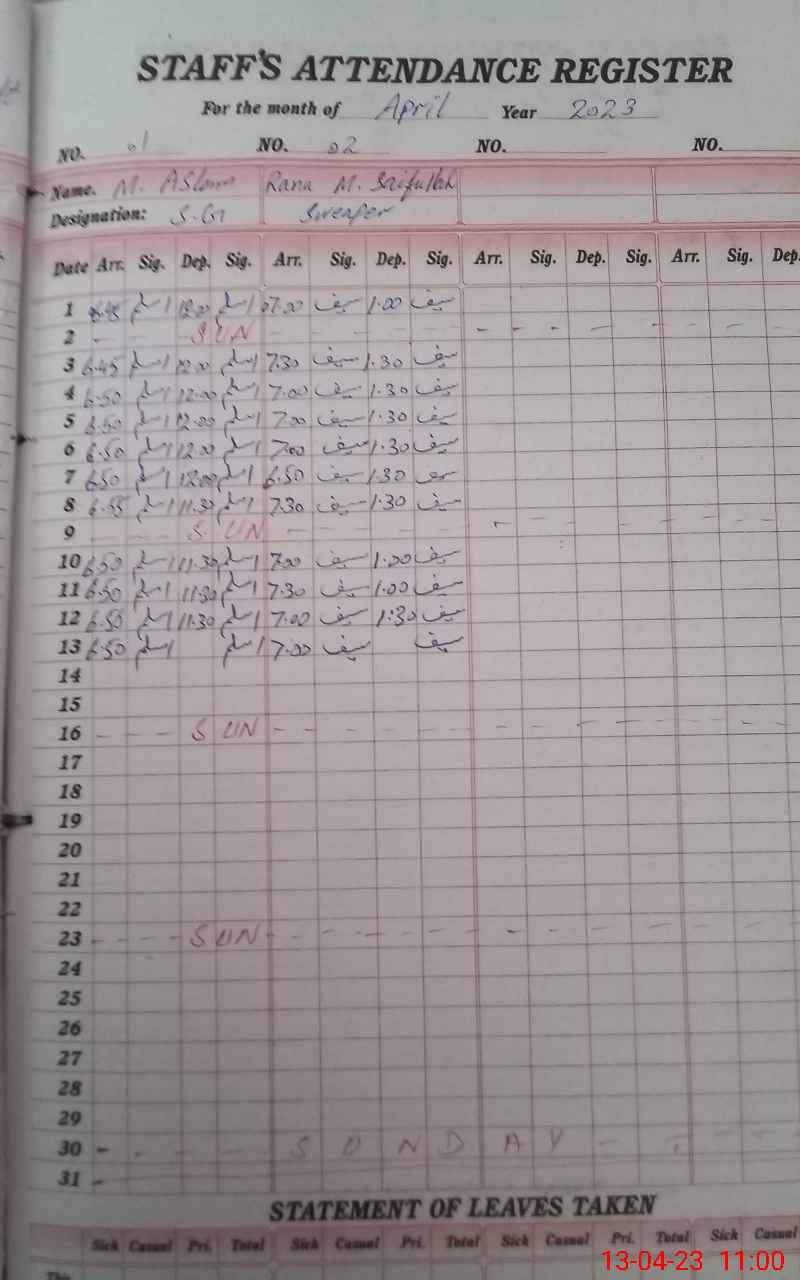 STAFF'S ATTENDANCE REGISTER
For the month of April Year 2023
NO. 01 NO. 02 NO. NO.
Name. M. Aslam Rana M. Saifullah
Designation: S.G Sweaper
Date Arr. Sig. Dep. Sig. Arr. Sig. Dep. Sig. Arr. Sig. Dep. Sig. Arr. Sig. Dep.
1 6.45 اسلم 12.00 اسلم 07.00 سیف 1.00 سیف
2 - - SUN - - - - - - - - - - -
3 6.45 اسلم 12.00 اسلم 7.30 سیف 1.30 سیف
4 6.50 اسلم 12.00 اسلم 7.00 سیف 1.30 سیف
5 6.50 اسلم 12.00 اسلم 7.00 سیف 1.30 سیف
6 6.50 اسلم 12.00 اسلم 7.00 سیف 1.30 سیف
7 6.50 اسلم 12.00 اسلم 6.50 سیف 1.30 سیف
8 6.55 اسلم 11.30 اسلم 7.30 سیف 1.30 سیف
9 - - - SUN - - - - - - - - -
10 6.50 اسلم 11.30 اسلم 7.00 سیف 1.00 سیف
11 6.50 اسلم 11.30 اسلم 7.30 سیف 1.00 سیف
12 6.50 اسلم 11.30 اسلم 7.00 سیف 1:30 سیف
13 6.50 اسلم اسلم 7.00 سیف سیف
14
15
16 - - - SUN - - - - - - - - - - -
17
18
19
20
21
22
23 - - - - SUN - - - - - - - - - - -
24
25
26
27
28
29
30 - - - - SUNDAY - - - -
31 -
STATEMENT OF LEAVES TAKEN
Sick Casual Pri. Total Sick Casual Pri. Total Sick Casual Pri. Total Sick Casual
13-04-23 11:00